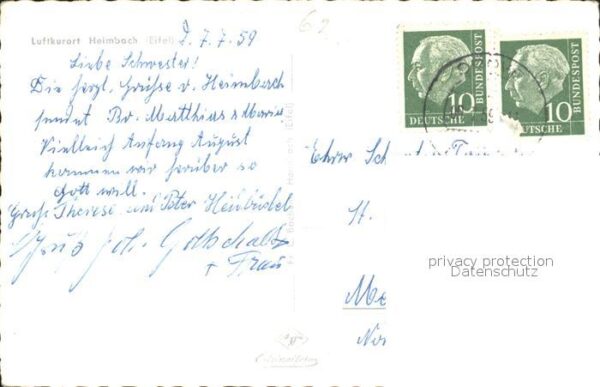 Luftkurort Heimbach (Eifel)
62
7. 7. 59
Liebe Schwester!
Die herzl. Grüsse v. Heimbach
sendet Br. Matthias u Maria
Vielleich Anfang August
kommen wir herüber so
Gott will.
Therese und Peter
Gruß Joh. Gottschalk
+ Frau
10
DEUTSCHE
BUNDESPOST
10
DEUTSCHE
BUNDESPOST
Ehrw
St.
Me
privacy protection
Datenschutz